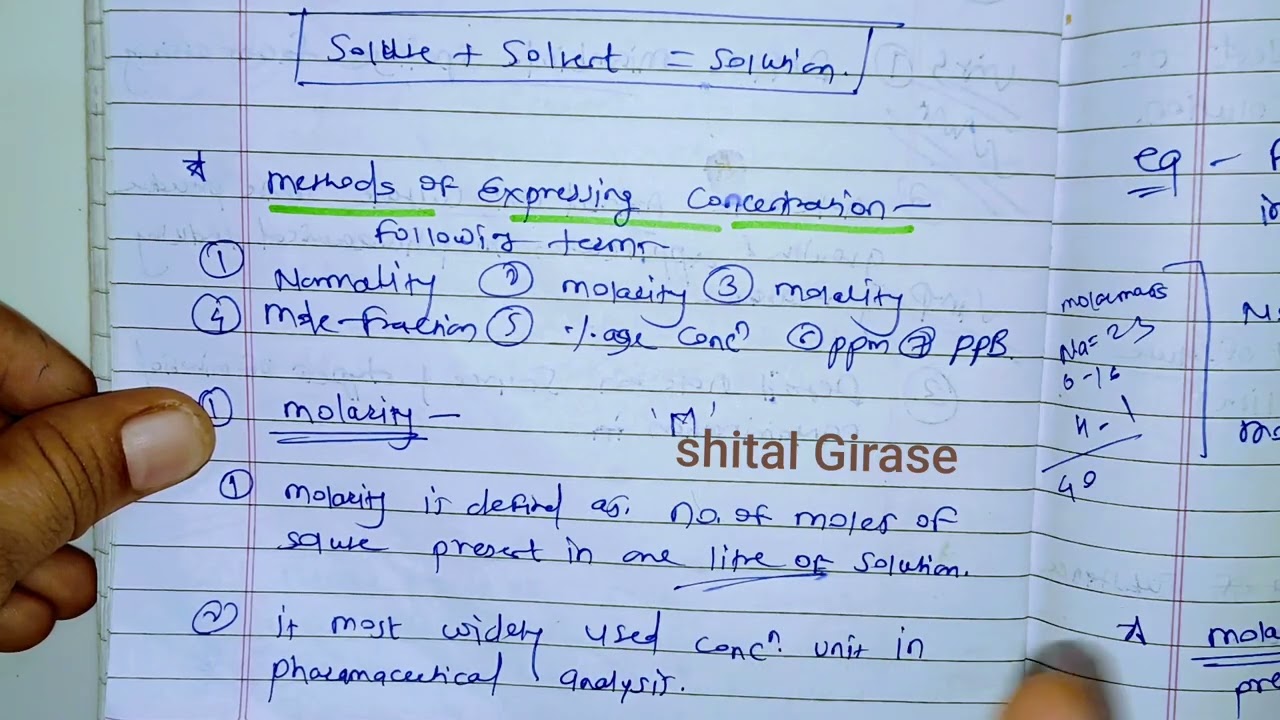 Solute + Solvent = Solution.
* Methods of Expressing Concentration –
Following terms
① Normality ② molarity ③ molality
④ Mole-fraction ⑤ %age Concⁿ ⑥ ppm ⑦ ppB.
① molarity – 'M'
shital Girase
① molarity is defined as. no. of moles of
solute present in one litre of solution.
② it most widely used concⁿ. unit in
pharmaceutical analysis.
eg –
molar mass
Na = 23
O - 16
H - 1
40
* mola
pre